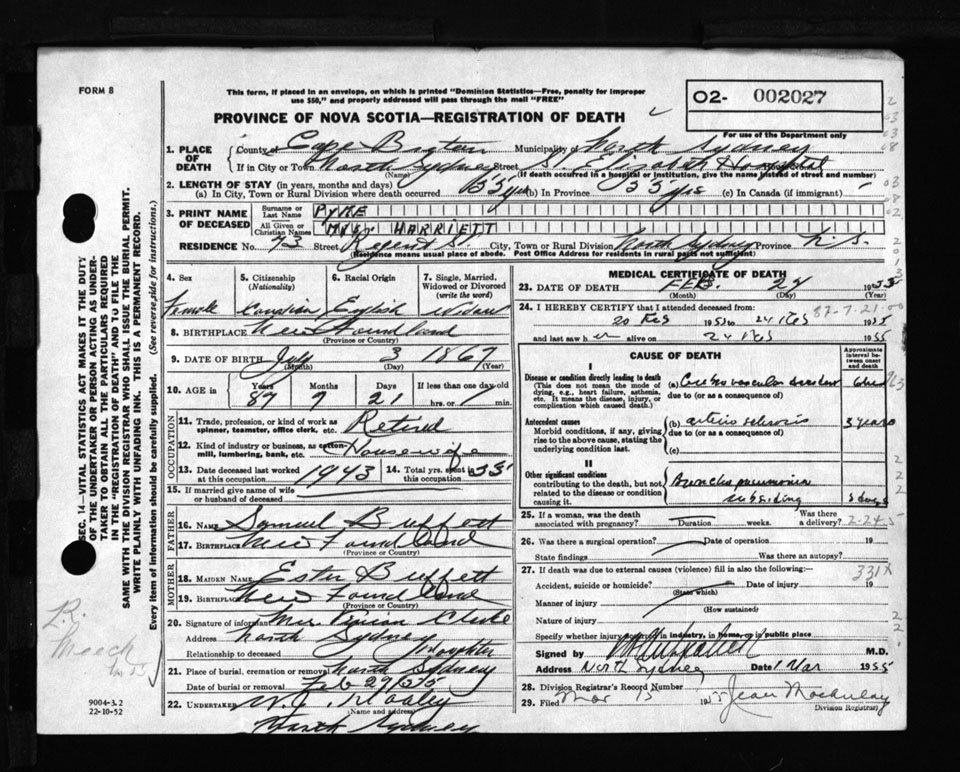 FORM 8
This form, if placed in an envelope, on which is printed "Dominion Statistics—Free, penalty for improper
use $50," and properly addressed will pass through the mail "FREE"
02- 002027
For use of the Department only
PROVINCE OF NOVA SCOTIA—REGISTRATION OF DEATH
1. PLACE OF DEATH
County of Cape Breton Municipality of North Sydney
If in City or Town North Sydney Street St. Elizabeth Hospital
(Name) (If death occurred in a hospital or institution, give the name instead of street and number)
2. LENGTH OF STAY (in years, months and days)
(a) In City, Town or Rural Division where death occurred 55 yrs (b) In Province 55 yrs (c) In Canada (if immigrant)
3. PRINT NAME OF DECEASED
Surname or Last Name PYKE
All Given or Christian Names MRS. HARRIETT
RESIDENCE No. 73 Street Regent St. City, Town or Rural Division North Sydney Province N.S.
(Residence means usual place of abode. Post Office Address for residents in rural parts not sufficient)
4. Sex Female
5. Citizenship (Nationality) Canadian
6. Racial Origin English
7. Single, Married, Widowed or Divorced (write the word) Widow
8. BIRTHPLACE New Foundland
(Province or Country)
9. DATE OF BIRTH July 3 1867
(Month) (Day) (Year)
10. AGE in Years Months Days If less than one day old
87 7 21 hrs. or min.
OCCUPATION
11. Trade, profession, or kind of work as spinner, teamster, office clerk, etc. Retired
12. Kind of industry or business, as cotton-mill, lumbering, bank, etc. Housewife
13. Date deceased last worked at this occupation 1943
14. Total yrs. spent in 55
15. If married give name of wife or husband of deceased
FATHER
16. NAME Samuel Buffett
17. BIRTHPLACE New Foundland
(Province or Country)
MOTHER
18. MAIDEN NAME Ester Buffett
19. BIRTHPLACE New Foundland
(Province or Country)
20. Signature of informant Mrs Vivian
Address North Sydney
Relationship to deceased Daughter
21. Place of burial, cremation or removal North Sydney
Date of burial or removal Feb 27/55
22. UNDERTAKER W. J.
(Name and address)
North Sydney
MEDICAL CERTIFICATE OF DEATH
23. DATE OF DEATH FEB. 24 1955
(Month) (Day) (Year)
24. I HEREBY CERTIFY that I attended deceased from: 87-7-21-00
20 Feb 1955 to 24 Feb 1955
and last saw her alive on 24 Feb 1955
CAUSE OF DEATH
Approximate interval between onset and death
I
Disease or condition directly leading to death
(This does not mean the mode of dying, e.g., heart failure, asthenia, etc. It means the disease, injury, or complication which caused death.)
(a) Cerebro vascular accident
due to (or as a consequence of)
Antecedent causes
Morbid conditions, if any, giving rise to the above cause, stating the underlying condition last.
(b) arterio sclerosis 3 years
due to (or as a consequence of)
(c)
II
Other significant conditions
contributing to the death, but not related to the disease or condition causing it.
Broncho pneumonia
subsiding 3 days
25. If a woman, was the death associated with pregnancy? Duration weeks. Was there a delivery? 2-24-5
26. Was there a surgical operation? Date of operation 19
State findings Was there an autopsy?
27. If death was due to external causes (violence) fill in also the following:— 331X
Accident, suicide or homicide? Date of injury 19
(State which)
Manner of injury
(How sustained)
Nature of injury
Specify whether injury occurred in industry, in home, or in public place
Signed by M.D.
Address North Sydney Date 1 Mar 1955
28. Division Registrar's Record Number
29. Filed Mar 1955 Jean
Division Registrar)
SEC. 14—VITAL STATISTICS ACT MAKES IT THE DUTY
OF THE UNDERTAKER OR PERSON ACTING AS UNDER-
TAKER TO OBTAIN ALL THE PARTICULARS REQUIRED
IN THE "REGISTRATION OF DEATH" AND TO FILE THE
SAME WITH THE DIVISION REGISTRAR WHO SHALL ISSUE THE BURIAL PERMIT.
WRITE PLAINLY WITH UNFADING INK. THIS IS A PERMANENT RECORD.
Every item of information should be carefully supplied. (See reverse side for instructions.)
9004-3.2
22-10-52